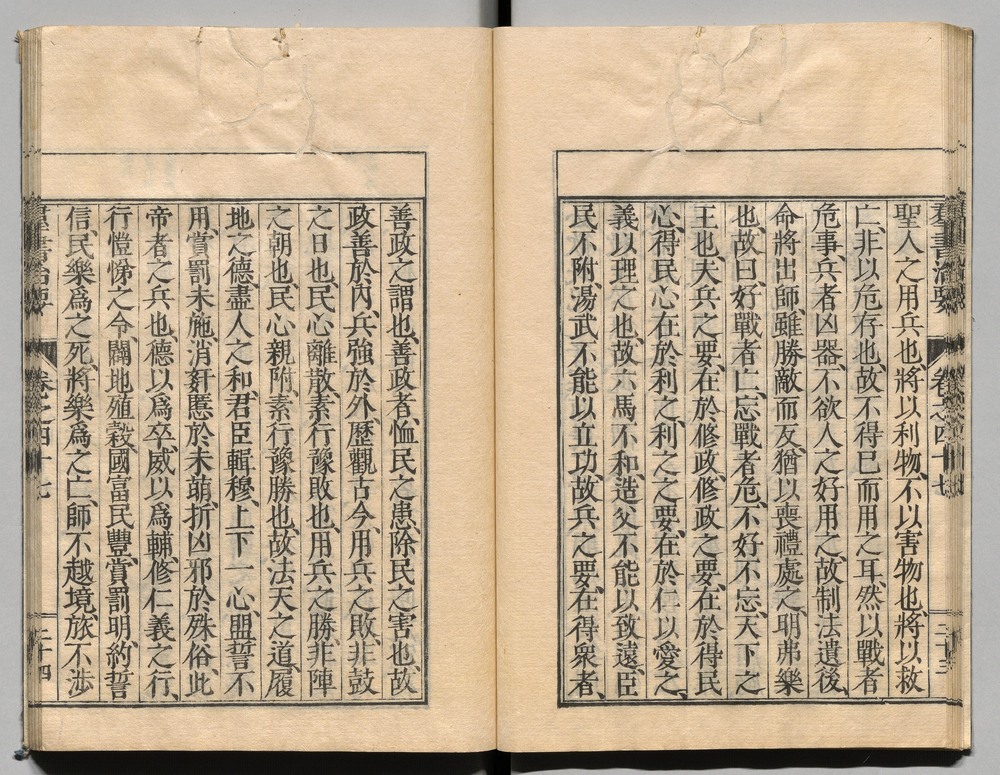 羣書治要
卷之四十七
二十三
聖人之用兵也、將以利物、不以害物也、將以救
亡、非以危存也、故不得已而用之耳、然以戰者
危事、兵者凶器、不欲人之好用之、故制法遺後、
命將出師、雖勝敵而反、猶以喪禮處之、明弗樂
也、故曰、好戰者亡、忘戰者危、不好不忘、天下之
王也、夫兵之要、在於修政、修政之要、在於得民
心、得民心、在於利之、利之之要、在於仁以愛之、
義以理之也、故六馬不和、造父不能以致遠、臣
民不附、湯武不能以立功、故兵之要、在得衆者、
善政之謂也、善政者、恤民之患、除民之害也、故
政善於內、兵強於外、歷觀古今用兵之敗、非鼓
之日也、民心離散、素行豫敗也、用兵之勝、非陣
之朝也、民心親附、素行豫勝也、故法天之道、履
地之德、盡人之和、君臣輯穆、上下一心、盟誓不
用、賞罰未施、消奸慝於未萌、折凶邪於殊俗、此
帝者之兵也、德以爲卒、威以爲輔、修仁義之行、
行愷悌之令、闢地殖穀、國富民豐、賞罰明、約誓
信、民樂爲之死、將樂爲之亡、師不越境、旅不涉
羣書治要
卷之四十七
二十四